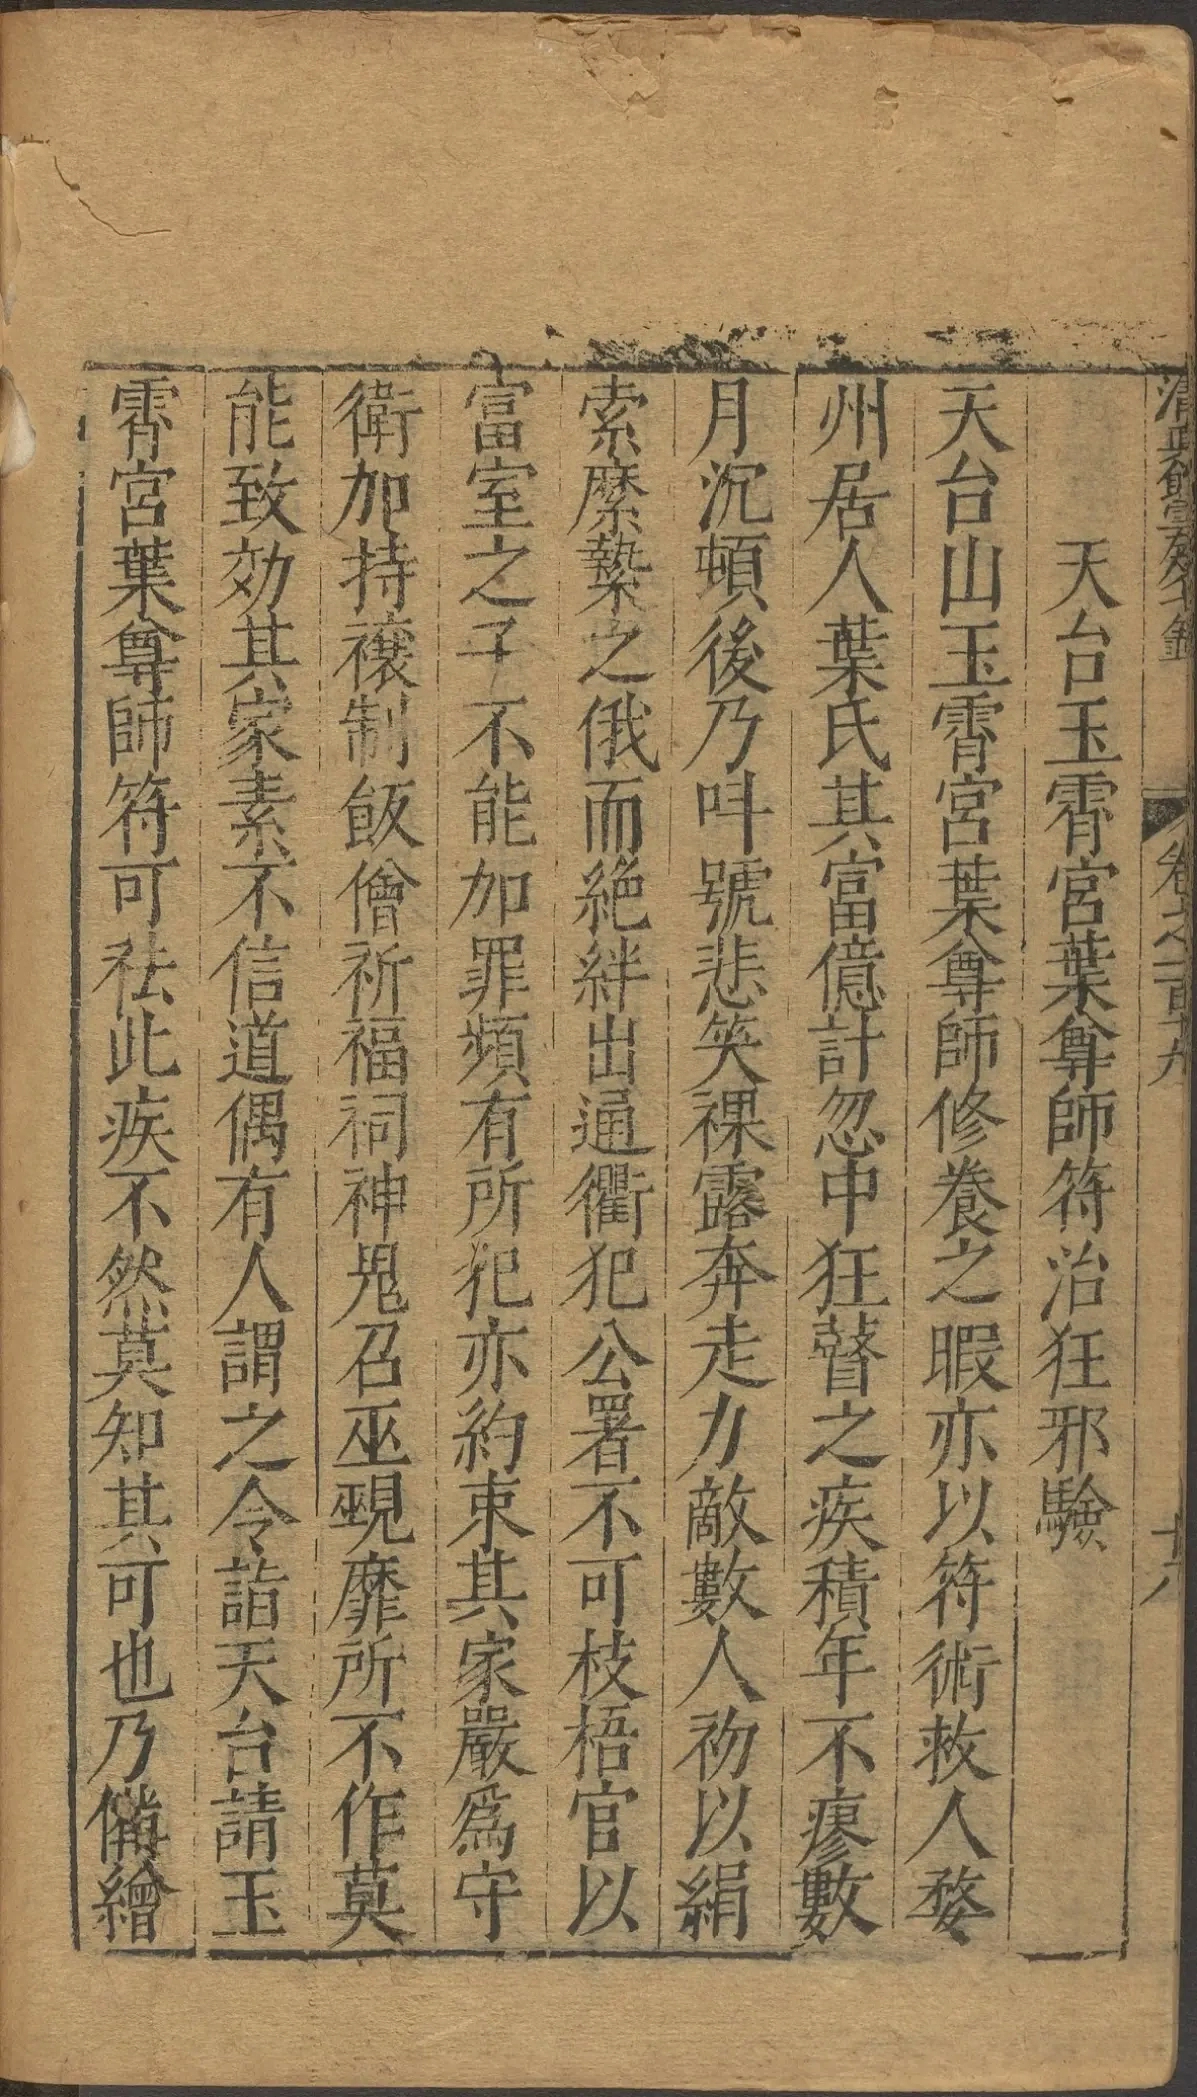 卷之一百十九
十八
天台玉霄宮葉尊師符治狂邪驗
天台山玉霄宮葉尊師修養之暇亦以符術救人婺
州居人葉氏其富億計忽中狂瞽之疾積年不瘳數
月沉頓後乃呌號悲笑裸露奔走力敵數人初以絹
索縻縶之俄而絶絆出通衢犯公署不可枝梧官以
富室之子不能加罪頻有所犯亦約束其家嚴爲守
衛加持禳制飯僧祈福祠神鬼召巫覡靡所不作莫
能致効其家素不信道偶有人謂之令詣天台請玉
霄宮葉尊師符可祛此疾不然莫知其可也乃僃繒